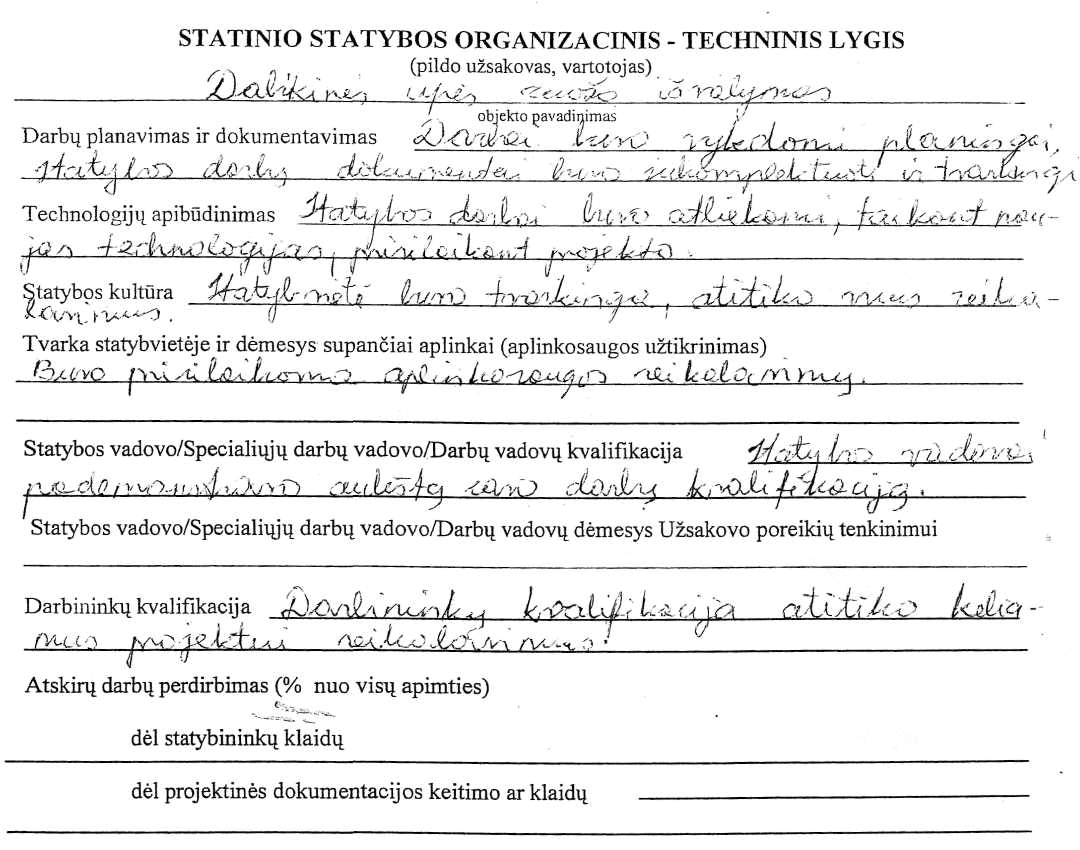 STATINIO STATYBOS ORGANIZACINIS - TECHNINIS LYGIS
(pildo užsakovas, vartotojas)
upės ruožo išvalymas
objekto pavadinimas
Darbų planavimas ir dokumentavimas Darbai buvo vykdomi planingai,
statybos darbų dokumentai buvo sukomplektuoti ir tvarkingi
Technologijų apibūdinimas Statybos darbai buvo atliekami, taikant nau-
jas technologijas, prisilaikant projekto.
Statybos kultūra Statybvietė buvo tvarkinga, atitiko mūsų reika-
lavimus.
Tvarka statybvietėje ir dėmesys supančiai aplinkai (aplinkosaugos užtikrinimas)
Buvo prisilaikoma aplinkosaugos reikalavimų.
Statybos vadovo/Specialiųjų darbų vadovo/Darbų vadovų kvalifikacija Statybos vadovai
pademonstravo aukštą savo darbų kvalifikaciją.
Statybos vadovo/Specialiųjų darbų vadovo/Darbų vadovų dėmesys Užsakovo poreikių tenkinimui
Darbininkų kvalifikacija Darbininkų kvalifikacija atitiko kelia-
mus projektui reikalavimus.
Atskirų darbų perdirbimas (% nuo visų apimties)
dėl statybininkų klaidų
dėl projektinės dokumentacijos keitimo ar klaidų